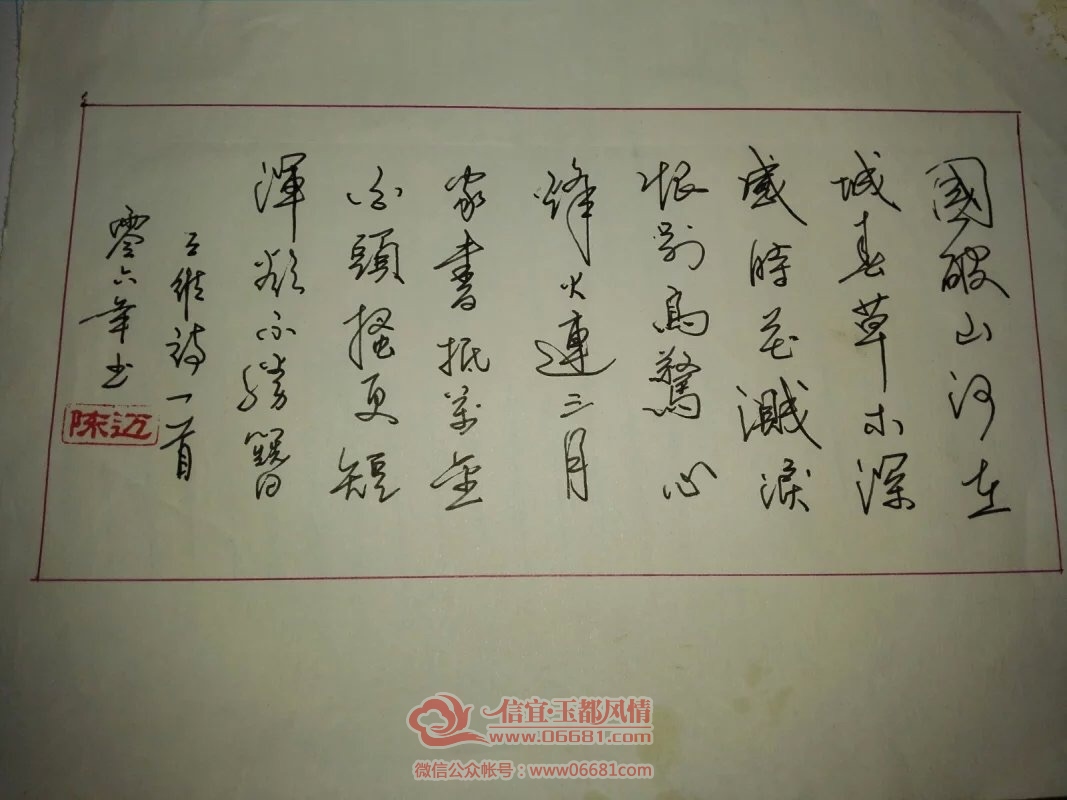 國破山河在
城春草木深
感時花濺淚
恨别鳥驚心
烽火連三月
家書抵萬金
白頭搔更短
渾欲不勝簪
王維詩一首
零六年书
陈迈
信宜·玉都风情
www.06681.com
微信公众帐号：www06681com